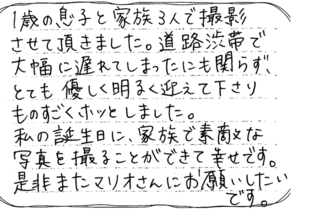 1歳の息子と家族3人で撮影
させて頂きました。道路渋帯で
大幅に遅れてしまったにも関らず、
とても 優しく明るく迎えて下さり
ものすごくホッとしました。
私の誕生日に、家族で素敵な
写真を撮ることができて幸せです。
是非またマリオさんにお願いしたい
です。